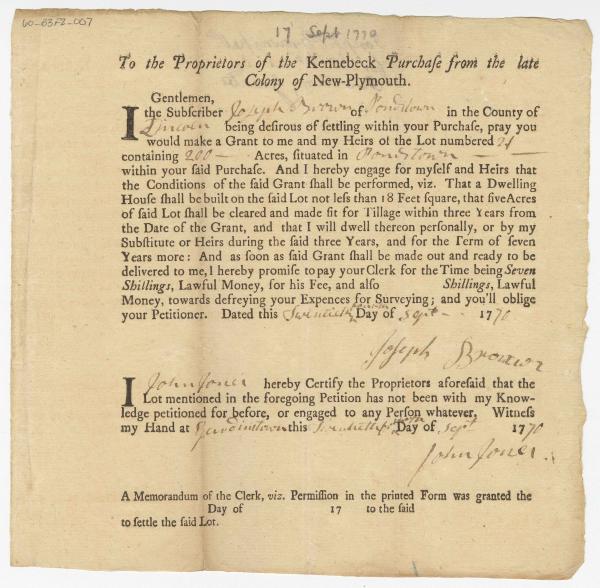 60-83F2-007
17 Sept 1770
To the Proprietors of the Kennebeck Purchaſe from the late
Colony of New-Plymouth.
Gentlemen,
I the Subſcriber Joseph Brown of Pondstown in the County of
Lincoln being deſirous of ſettling within your Purchaſe, pray you
would make a Grant to me and my Heirs of the Lot numbered
containing 200 — Acres, ſituated in Pondstown —
within your ſaid Purchaſe. And I hereby engage for myſelf and Heirs that
the Conditions of the ſaid Grant ſhall be performed, viz. That a Dwelling
Houſe ſhall be built on the ſaid Lot not leſs than 18 Feet ſquare, that fiveAcres
of ſaid Lot ſhall be cleared and made fit for Tillage within three Years from
the Date of the Grant, and that I will dwell thereon perſonally, or by my
Subſtitute or Heirs during the ſaid three Years, and for the Term of ſeven
Years more: And as ſoon as ſaid Grant ſhall be made out and ready to be
delivered to me, I hereby promiſe to pay your Clerk for the Time being Seven
Shillings, Lawful Money, for his Fee, and alſo Shillings, Lawful
Money, towards defreying your Expences for Surveying; and you'll oblige
your Petitioner. Dated this Day of Sept — 1770
Joseph Brown
I John Jones hereby Certify the Proprietors aforeſaid that the
Lot mentioned in the foregoing Petition has not been with my Know-
ledge petitioned for before, or engaged to any Perſon whatever, Witneſs
my Hand at this Day of Sept 1770
John Jones
A Memorandum of the Clerk, viz. Permiſſion in the printed Form was granted the
Day of 17 to the ſaid
to ſettle the ſaid Lot.